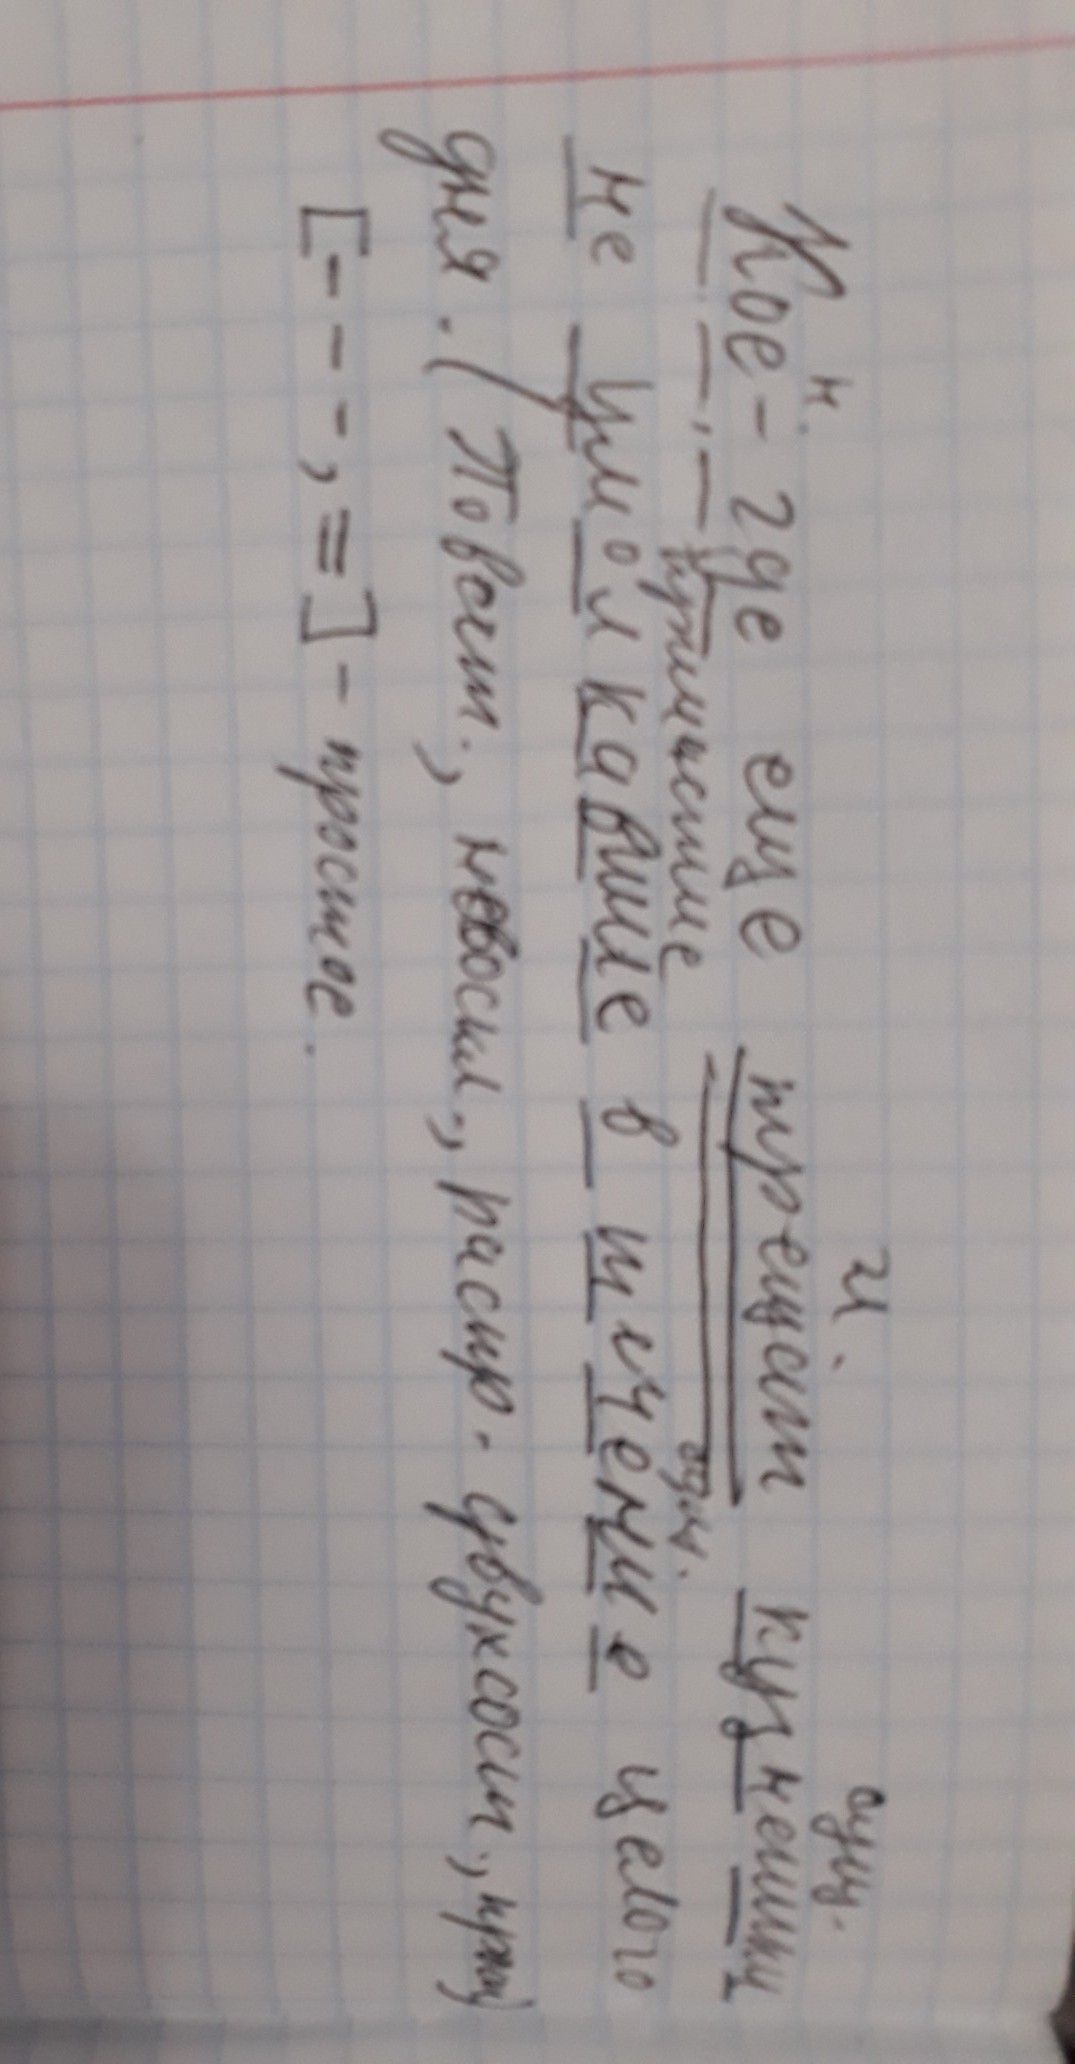 н. гл. сущ.
Кое-где еще трещат кузнечики
причастие сущ.
не умолкавшие в течение целого
дня. (Повест., невоскл., распр. двухсост., прост)
[- - -, =] - простое.